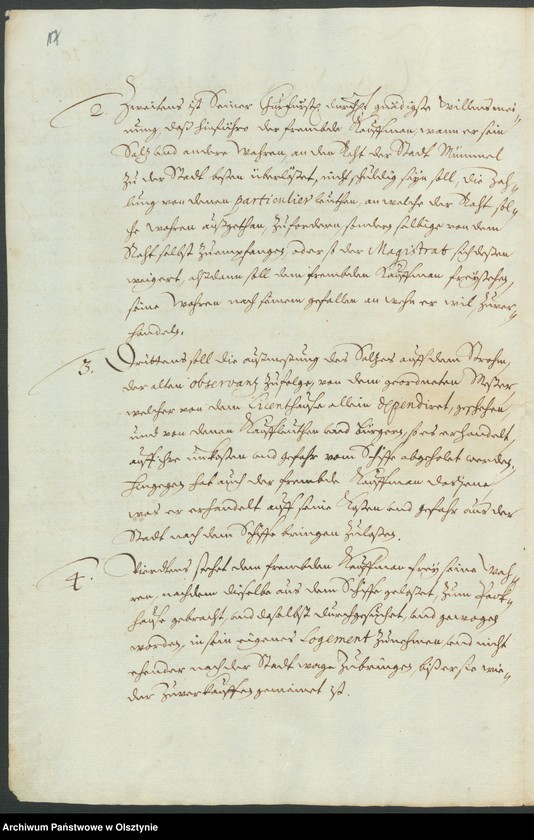 2. Zweitens ist Seiner Churfürstl. durchl. gnädigste willens mei-
nung, daß hinführo der frembde Kauffman, wann er sein
Saltz und andere Wahren, an den Raht der Stadt Mümmel
zu der Stadt besten überläßet, nicht schuldig sein soll, die Zah-
lung von denen particulier leuthen, an welche der Raht sol-
che wahren außgethan, zufordern sondern selbige von dem
Raht selbst zuempfangen, oder so der Magistrat sich deßen
weigert, alßdann soll dem frembden Kauffman freystehen,
seine Wahren nach seinem gefallen an wehn er wil, zuver-
handeln.
3. Drittens soll die außmeßung des Saltzes auff dem Strohm,
der alten observantz zufolge, von dem geordneten Meßer
welcher von dem Licenthause allein dependiret, geschehen
und von denen Kauffleuthen und Bürgern, so es erhandelt
auff ihre unkosten und gefahr vom Schiffe abgeholet werden,
Hingegen hat auch der frembde Kauffman dasjene
was er erhandelt auff seine Kosten und gefahr aus der
Stadt nach dem Schiffe bringen zulaßen.
4. Vierdtens stehet dem frembden Kauffman frey seine Wah-
ren, nachdem dieselbe aus dem Schiffe geloßet, zum Pack-
hause gebracht, und daselbst durchgesuchet, und gewogen
worden, in sein eigenes Logement zunehmen, und nicht
ehender nach der Stadt wage zubringen, biß er sie wie-
der zuverkauffen gemeinet ist.
Archiwum Państwowe w Olsztynie